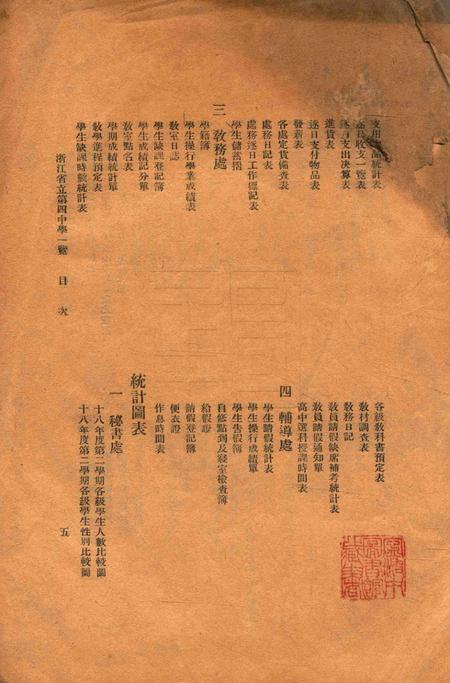 支用物品統計表
逐日收支一覽表
逐月支出決算表
進貨表
逐日支付物品表
發薪表
各處定貨備查表
處務日記表
處務逐日工作標記表
學生儲蓄摺
三 教務處
學籍簿
學生操行學業成績表
教室日誌
學生缺課登記簿
學生成績記分單
教室點名表
學期成績統計單
教學進程預定表
學生缺課時數統計表
各級教科書預定表
教材調查表
教務日記
教員請假缺席補考統計表
教員請假通知單
高中選科授課時間表
四 輔導處
學生請假統計表
學生操行成績單
學生告假簿
自修點到及寢室檢查簿
給假證
請假登記簿
便衣證
作息時間表
統計圖表
一 秘書處
十八年度第二學期各級學生人數比較圖
十八年度第二學期各級學生性別比較圖
浙江省立第四中學一覽 目次
五